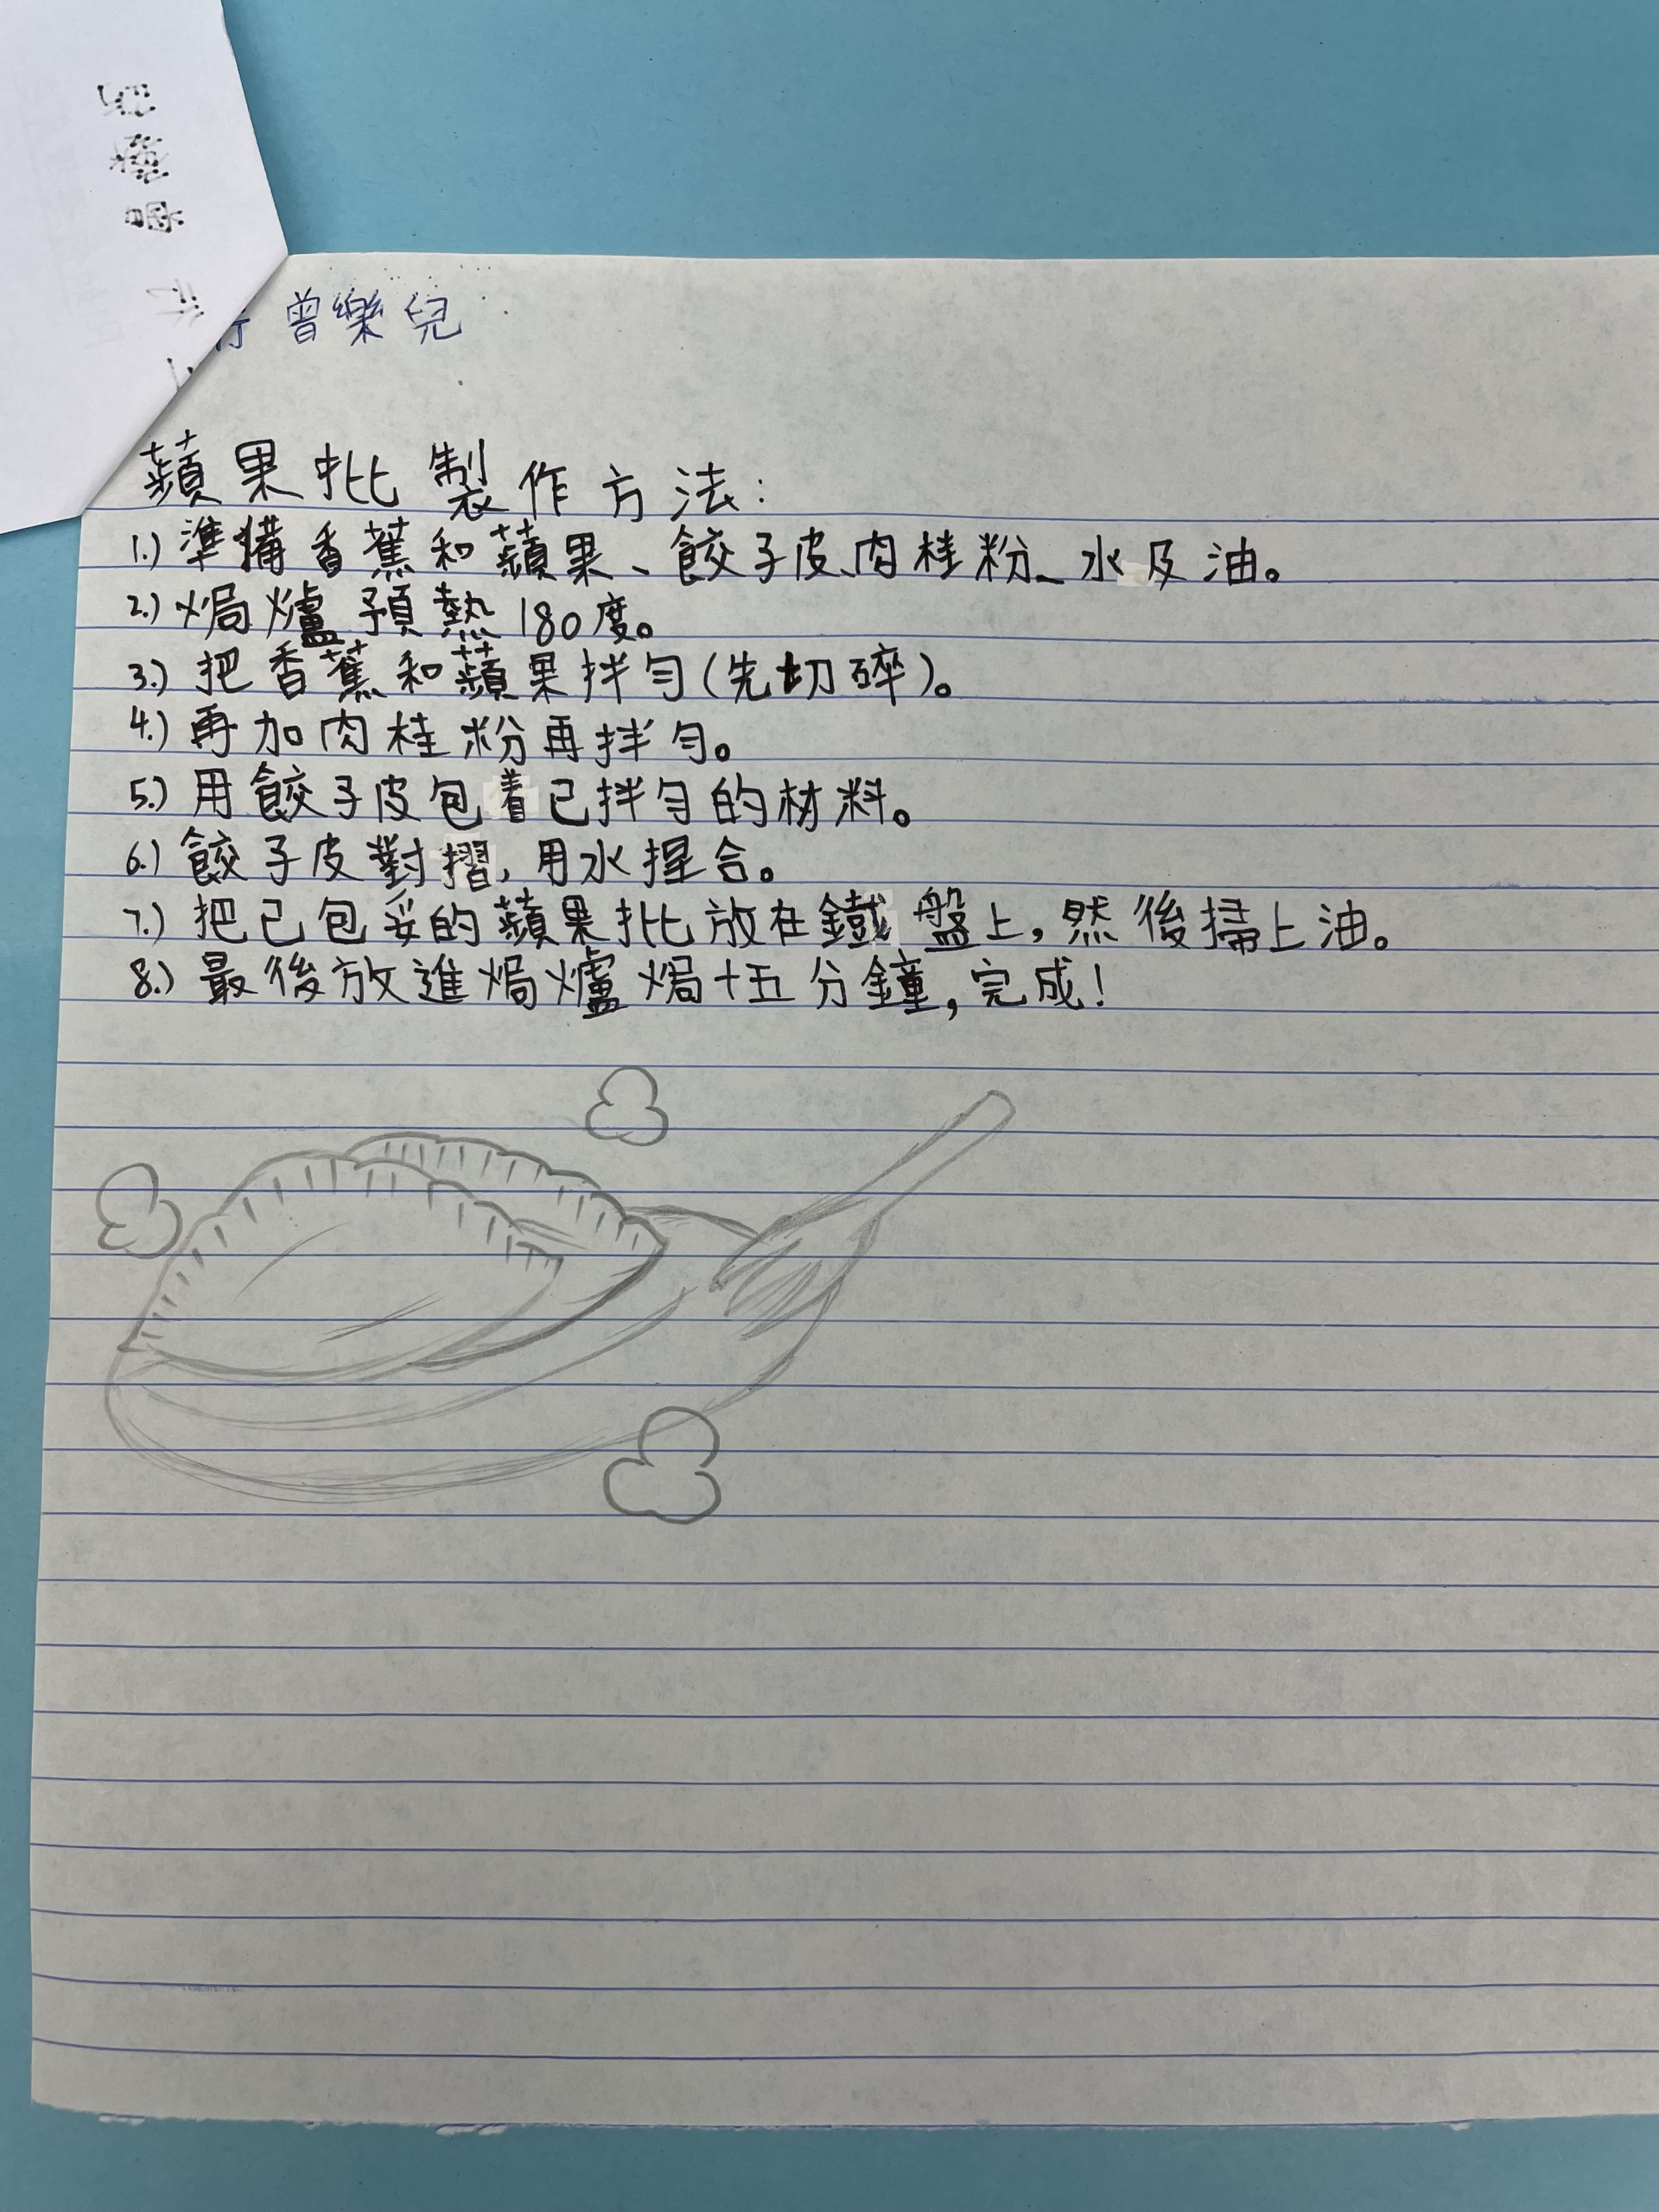 曾樂兒
蘋果批製作方法：
1.) 準備香蕉和蘋果、餃子皮、肉桂粉、水及油。
2.) 焗爐預熱180度。
3.) 把香蕉和蘋果拌勻(先切碎)。
4.) 再加肉桂粉再拌勻。
5.) 用餃子皮包着已拌勻的材料。
6.) 餃子皮對摺，用水捏合。
7.) 把已包妥的蘋果批放在鐵盤上，然後掃上油。
8.) 最後放進焗爐焗十五分鐘，完成！